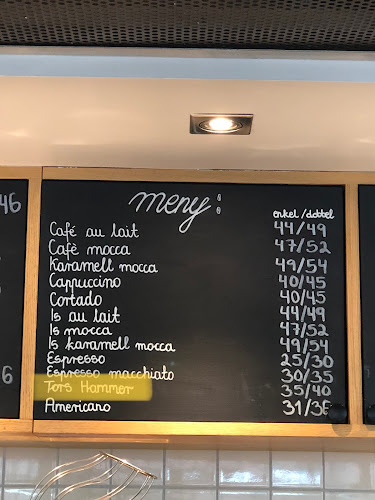 meny:
enkel/dobbel
Café au lait 44/49
Cafè mocca 47/52
Karamell mocca 49/54
Cappuccino 40/45
Cortado 40/45
Is au lait 44/49
Is mocca 47/52
Is karamell mocca 49/54
Espresso 25/30
Espresso macchiato 30/35
Tors Hammer 35/40
Americano 31/36
46
6